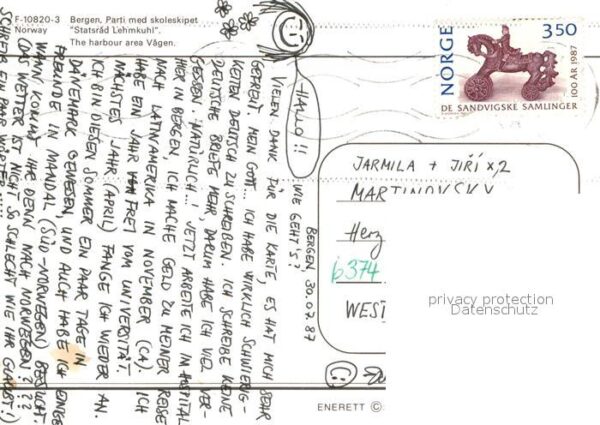 F-10820-3 Bergen, Parti med skoleskipet
Norway "Statsråd Lehmkuhl".
The harbour area Vågen.
NORGE
3 50
100 ÅR 1987
DE SANDVIGSKE SAMLINGER
HALLO!!
WIE GEHT'S?
BERGEN 30.07.87
VIELEN DANK FÜR DIE KARTE, ES HAT MICH SEHR
GEFREUT. MEIN GOTT... ICH HABE WIRKLICH SCHWIERIG-
KEITEN DEUTSCH ZU SCHREIBEN. ICH SCHREIBE KEINE
DEUTSCHE BRIEFE MEHR, DARUM HABE ICH VIEL VER-
GESSEN. NATÜRLICH... JETZT ARBEITE ICH IM HOSPITAL
HIER IN BERGEN, ICH MACHE GELD ZU MEINER REISE
NACH LATINAMERIKA IN NOVEMBER (CA). ICH
HABE EIN JAHR FREI VOM UNIVERSITÄT.
NÄCHSTES JAHR (APRIL) FANGE ICH WIEDER AN.
ICH BIN DIESEN SOMMER EIN PAAR TAGE IN
DÄNEMARK GEWESEN, UND AUCH HABE ICH EINIGE
FREUNDE IN MANDAL (SÜD-NORWEGEN) BESUCHT.
WANN KOMMT IHR DENN NACH NORWEGEN???
(DAS WETTER IST NICHT SO SCHLECHT WIE IHR GLAUBT!)
SCHREIB EIN PAAR WÖRTER...
JARMILA + JIŘÍ x,2
MARTINOVSKY
Herz
6374
WEST
privacy protection
Datenschutz
ENERETT ©